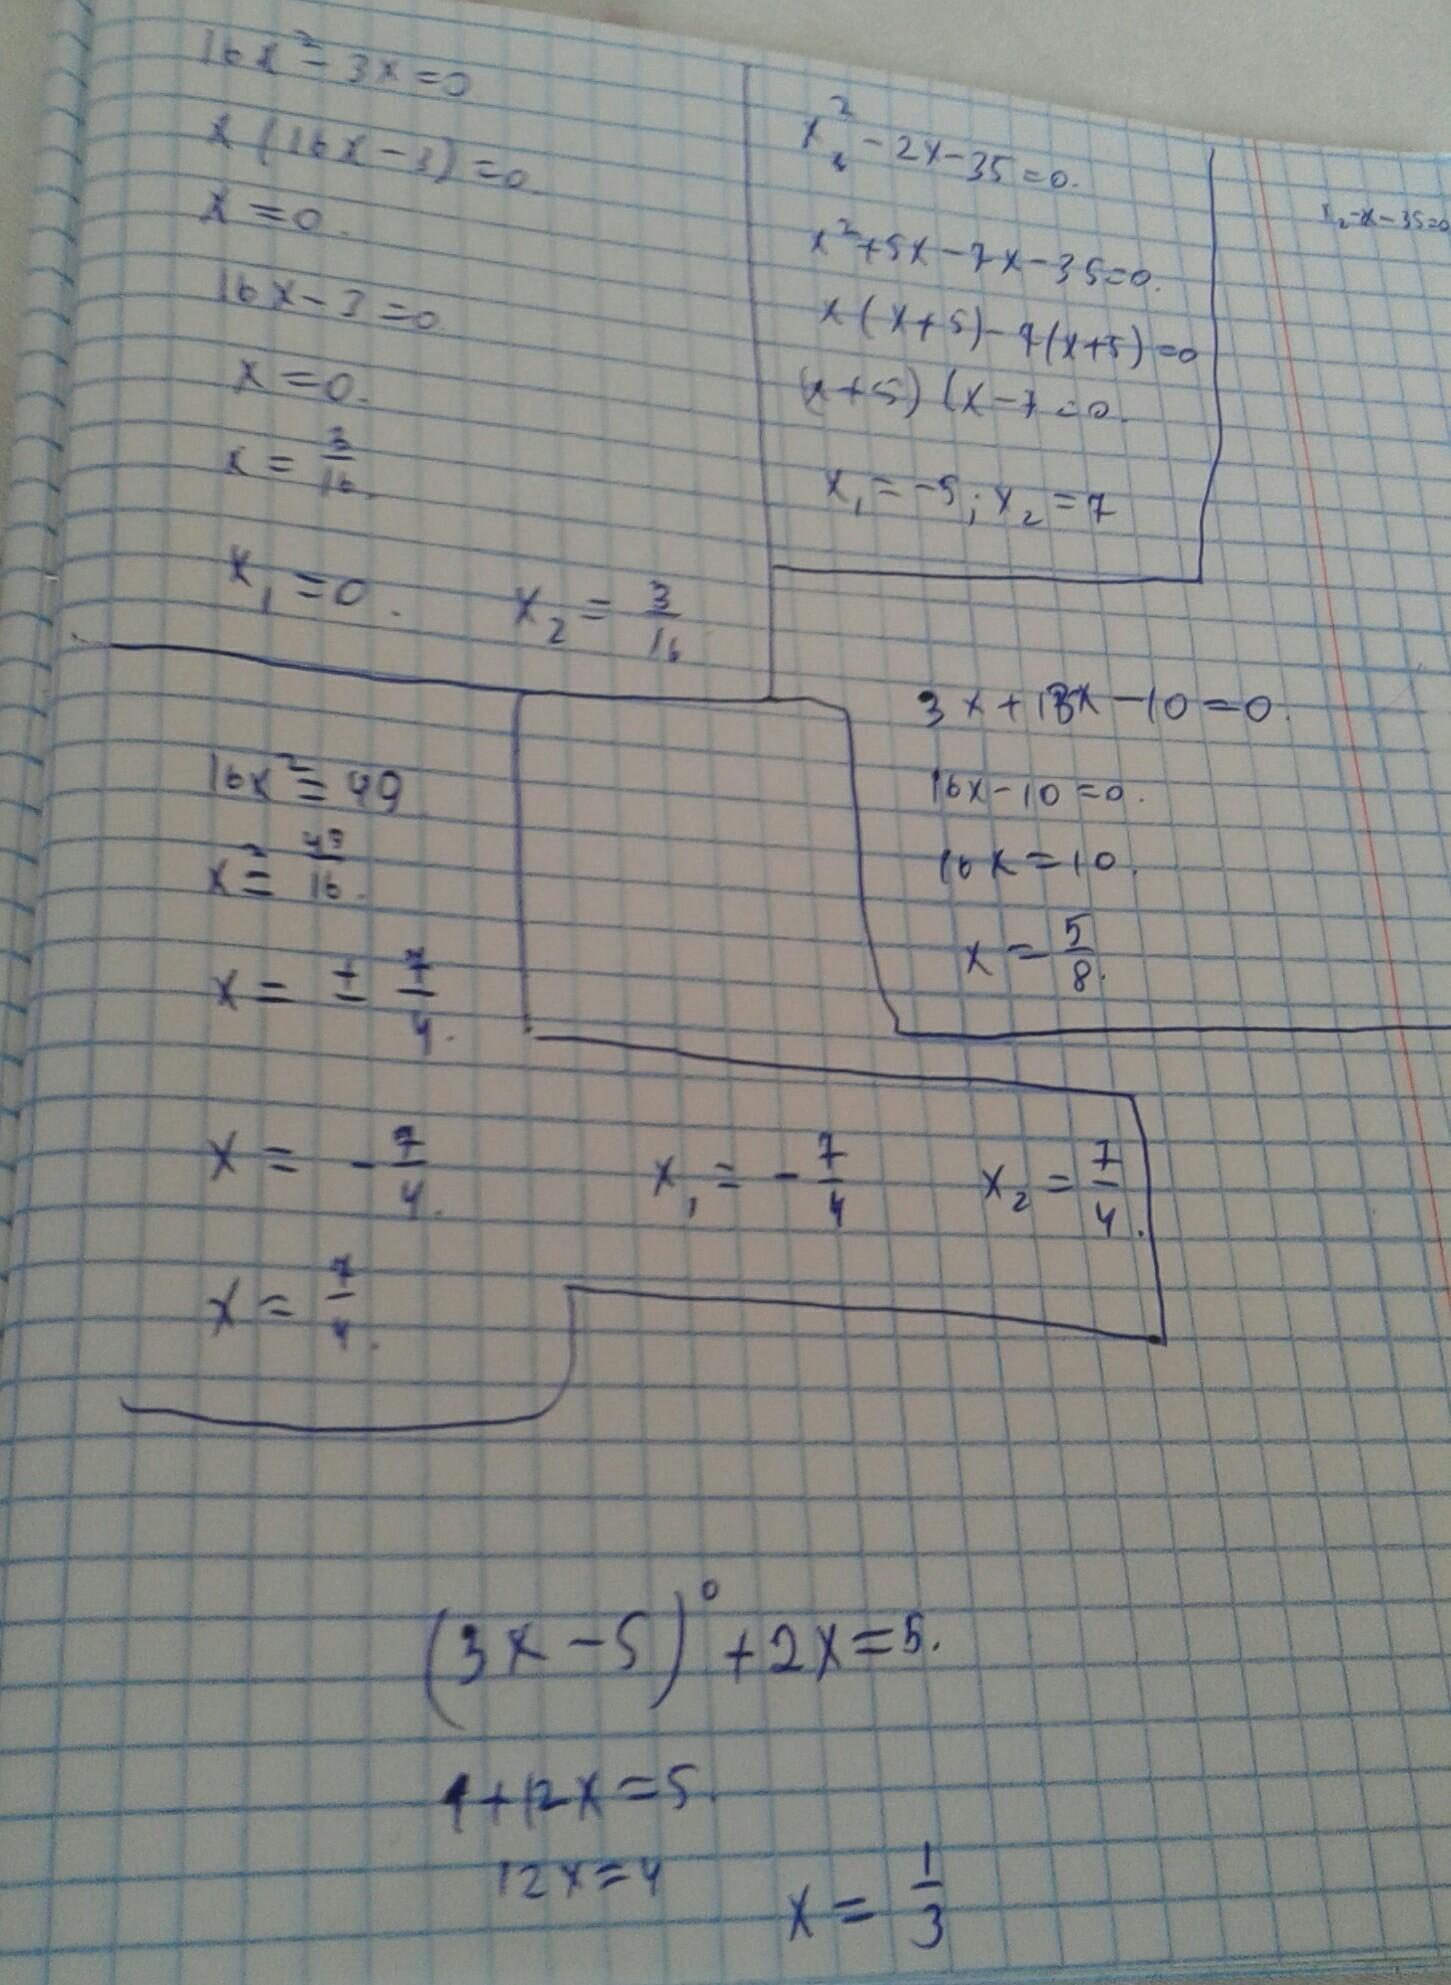 16x² - 3x = 0
x(16x - 3) = 0
x = 0.
16x - 3 = 0
x = 0.
x = 3/16.
x₁ = 0. x₂ = 3/16
x² - 2x - 35 = 0.
x² + 5x - 7x - 35 = 0.
x(x+5) - 7(x+5) = 0
(x+5)(x-7 = 0.
x₁ = -5; x₂ = 7
x₂-x-35=0
3x + 13x - 10 = 0.
16x - 10 = 0.
16x = 10.
x = 5/8.
16x² = 49
x² = 49/16.
x = ± 7/4.
x = - 7/4. x₁ = - 7/4 x₂ = 7/4.
x = 7/4.
(3x - 5)⁰ + 2x = 5.
1 + 12x = 5.
12x = 4
x = 1/3